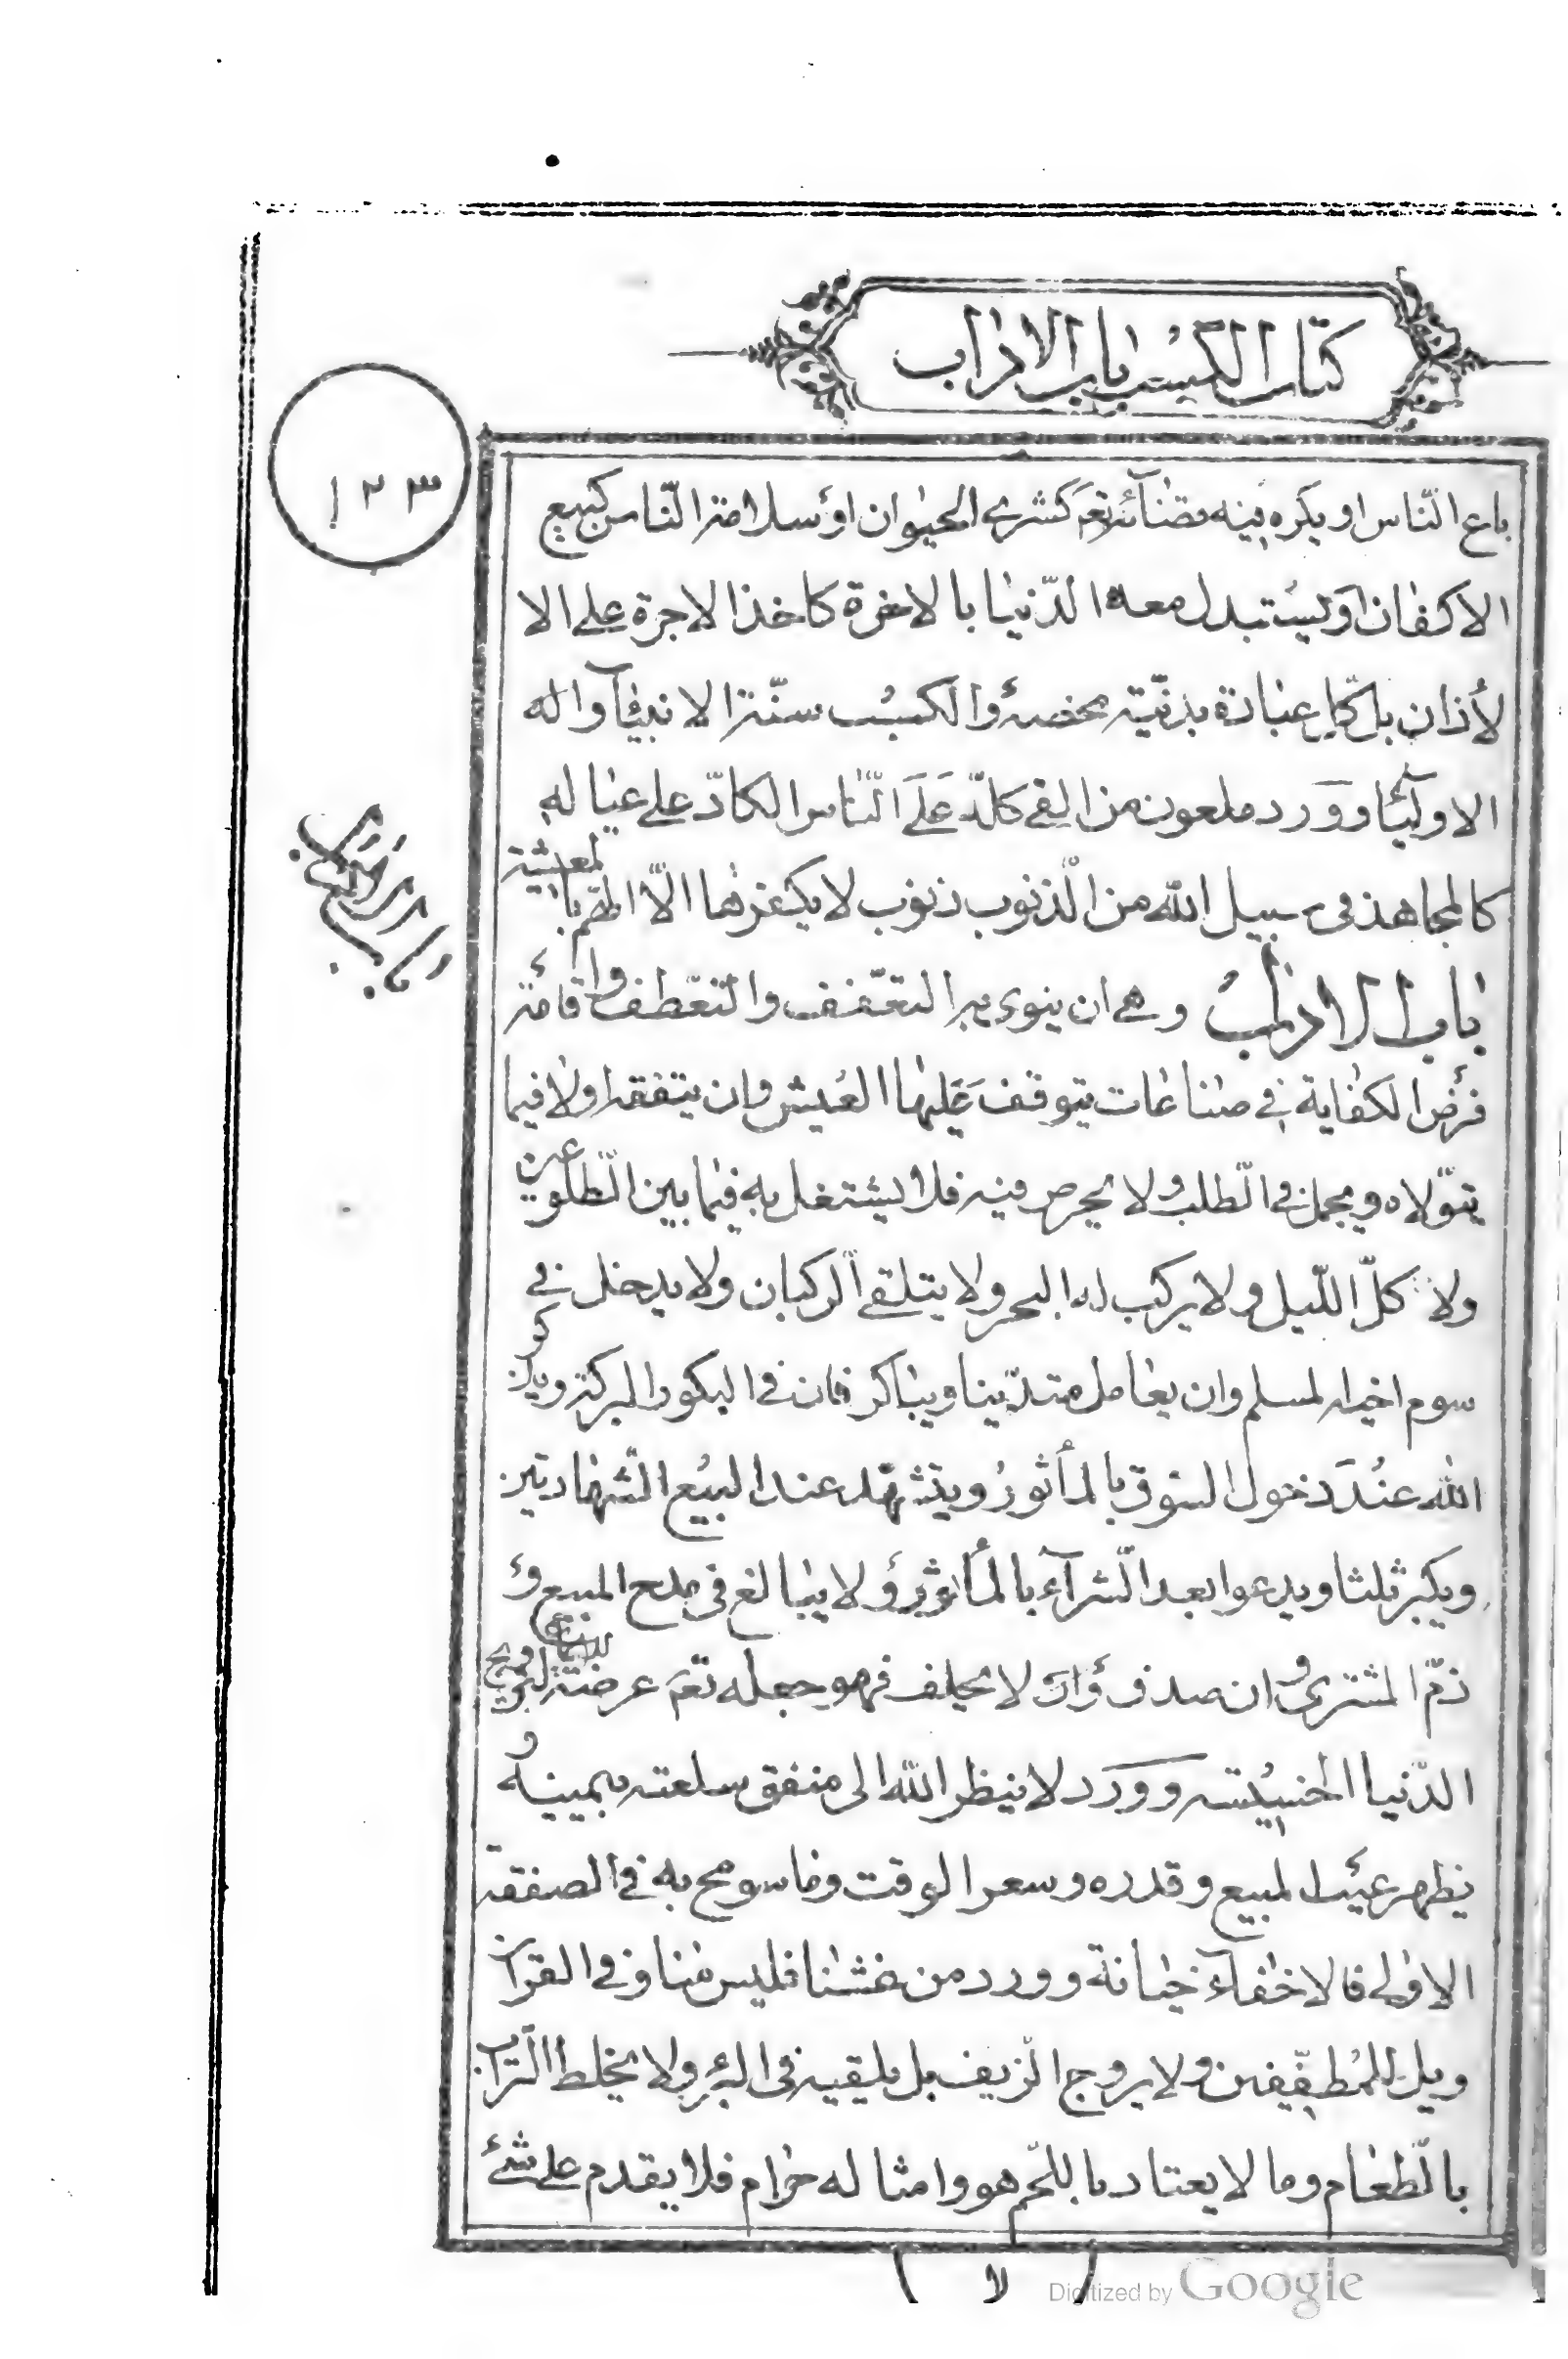 كتاب الكسب باب الاداب
١٢٣
باع النّاس او يكره فيه قضائه تعم كشرى الحيوان او سلامة النّاس كبيع
الاكفان او يستبدل معه الدّنيا بالاخرة كاخذ الاجرة على الا
لأذان بل كلّ عبادة بدنيّة محضة والكسب سنّة الانبيآ واله
الاوليآ و ورد ملعون من القى كلّه على النّاس الكادّ على عياله
كالمجاهد فى سبيل الله من الذنوب ذنوب لا يكفرها الّا الهمّ با
لمعيشة
باب الاداب وهى ان ينوى به التعفّف والتعطف واقامة
فرض الكفاية فى صناعات يتوقف عليها العيش وان يتفقه اولا فيما
يتولاه ويجمل فى الطلب ولا يحرص فيه فلا يشتغل به فيما بين الطلوعين
ولا كلّ الليل ولا يركب له البحر ولا يتلقى الركبان ولا يدخل فى
سوم اخيه المسلم وان يعامل متديّنا ويباكر فان فى البكور البركة ويذكر
الله عند دخول السّوق بالمأثور ويتشهّد عند البيع الشّهادتين
ويكبر ثلثا ويدعوا بعد الشرآء بالمأثور ولا يبالغ فى مدح المبيع و
ذمّ المشترى وان صدق وان لا يحلف فهو جعله تعم عرضة لترويج
الدّنيا الخسيسة و ورد لا ينظر الله الى منفق سلعته بيمينه و
يظهر عيب المبيع وقدره وسعر الوقت وما سومح به فى الصفقة
الاولى فالاخفآء خيانة و ورد من غشنا فليس منا وفى القران
ويل للمطفّفين ولا يروج الزيف بل يلقيه فى البئر ولا يخلط التراب
بالطعام وما لا يعتاد باللحم هو وامثاله حرام فلا يقدم على شئ
باب الاداب
Digitized by Google